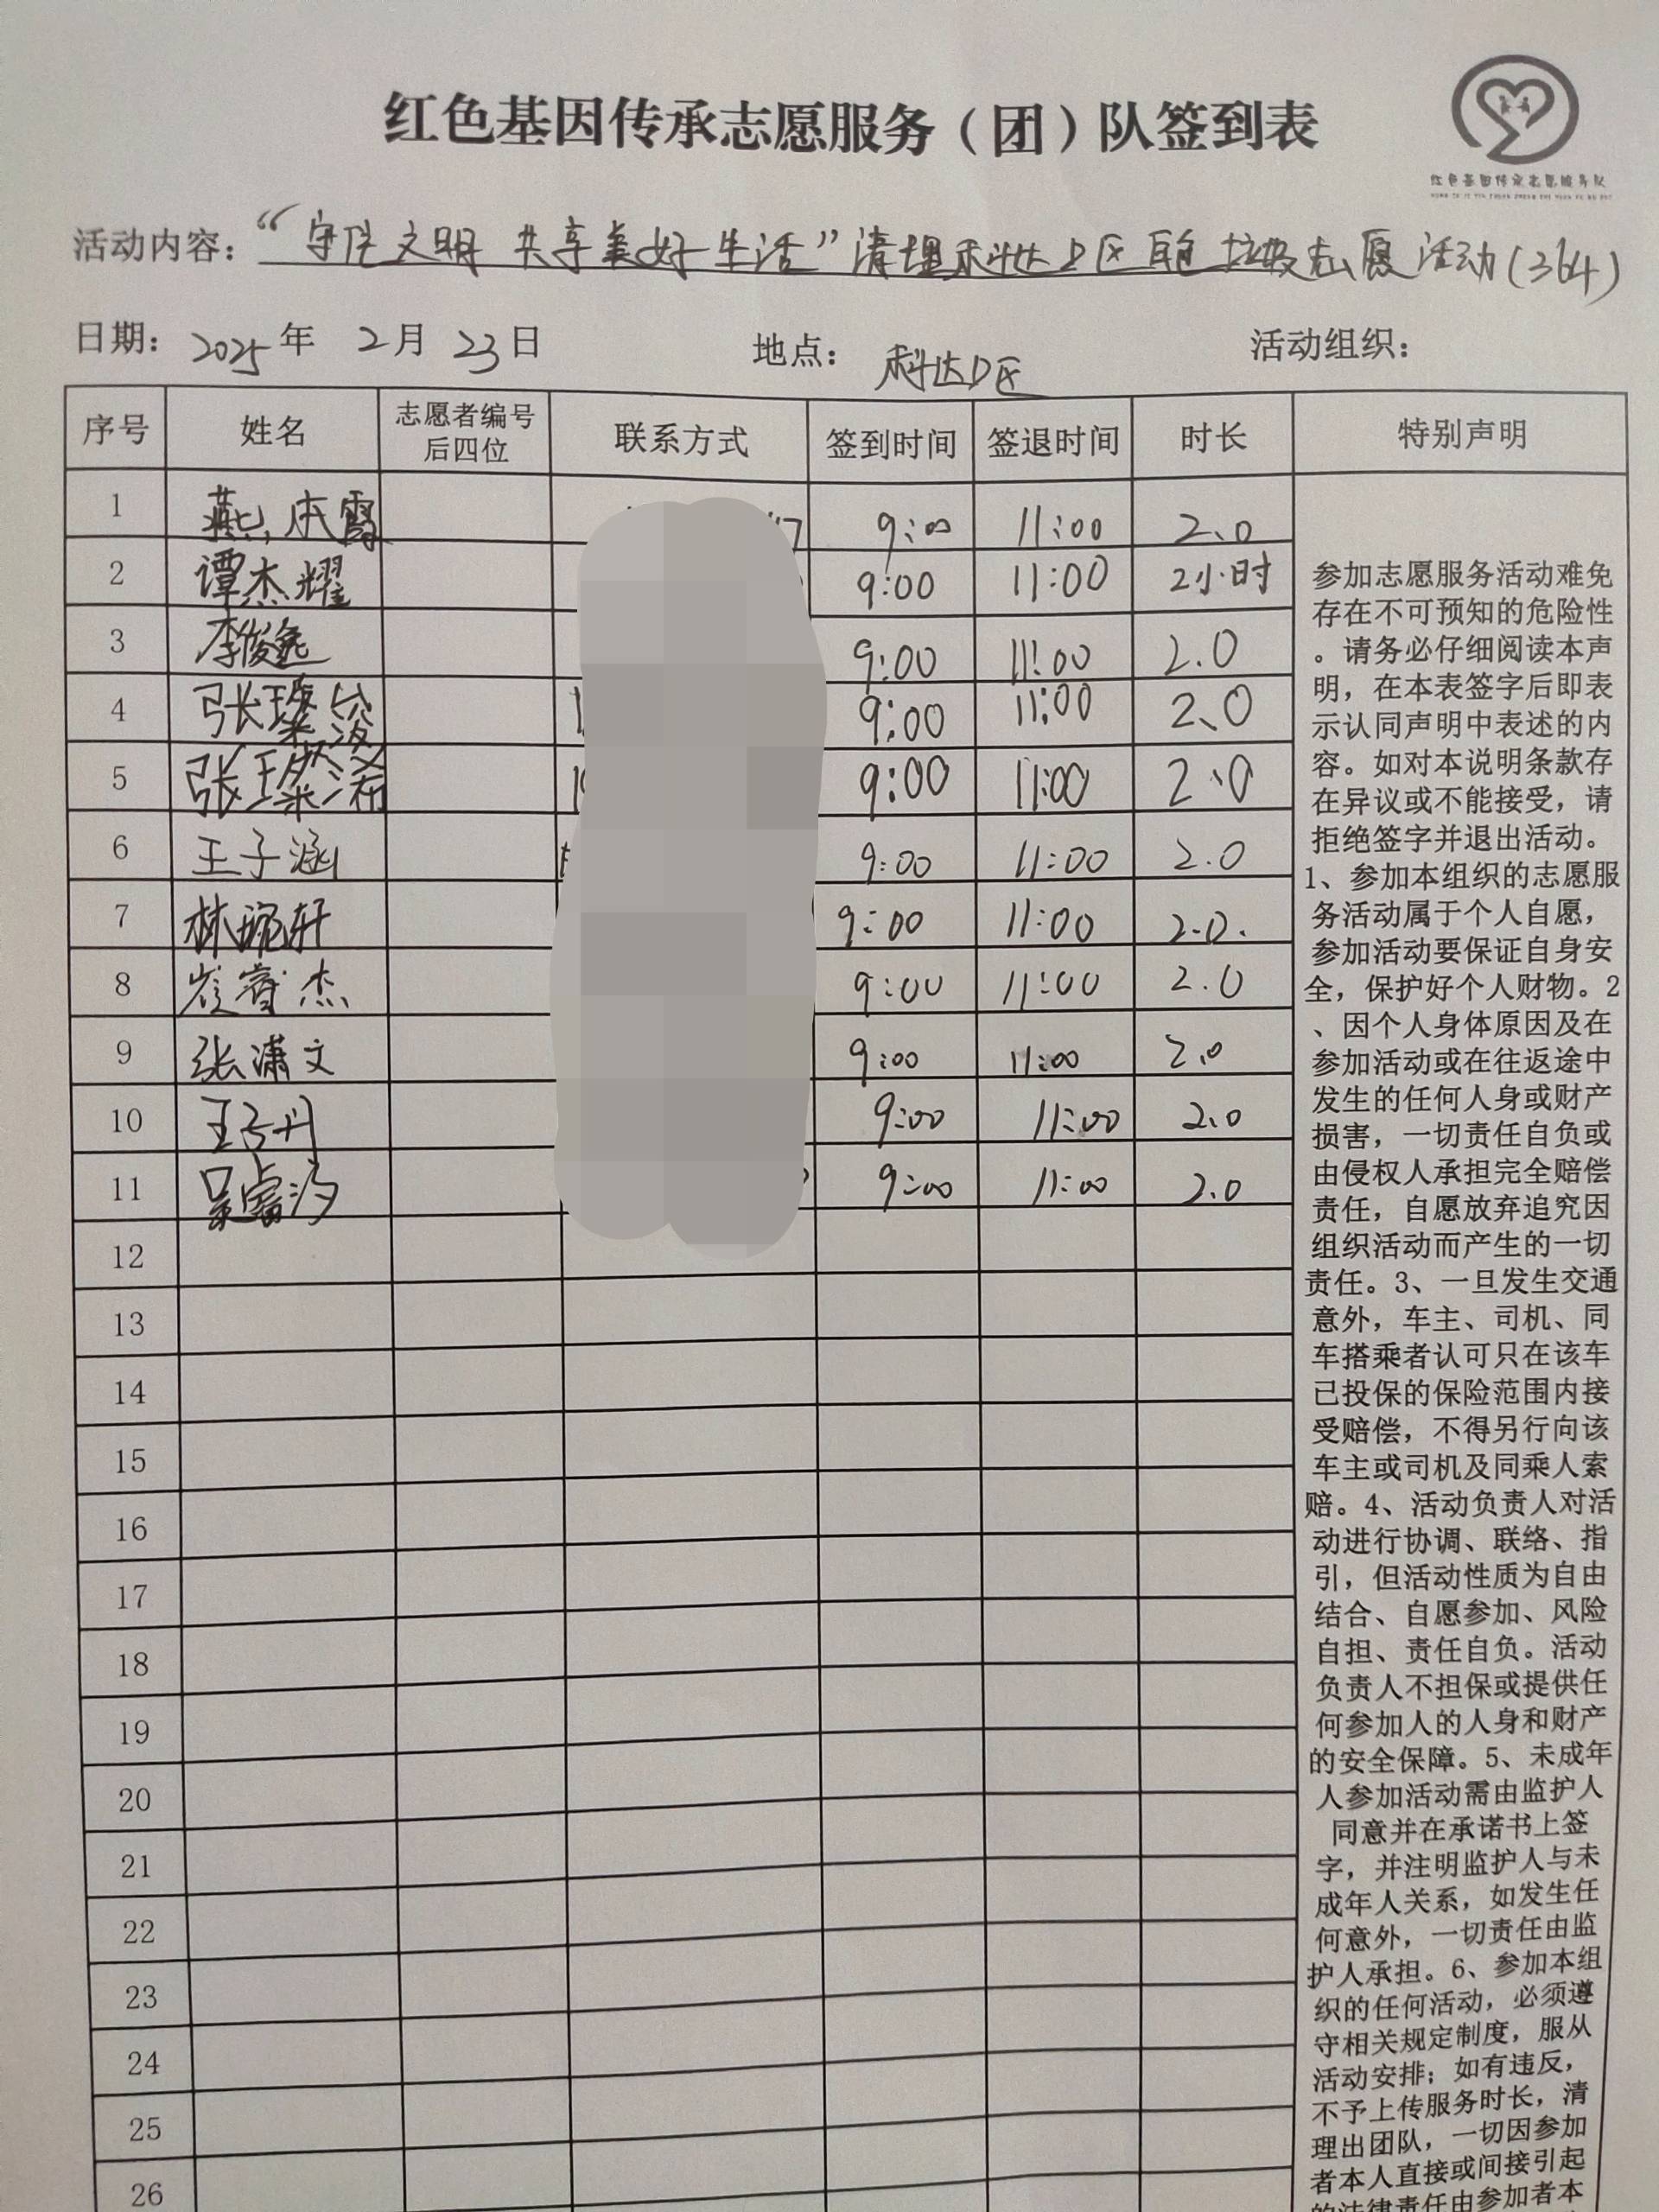 红色基因传承志愿服务（团）队签到表
红色基因传承志愿服务队
活动内容：“守住文明 共享美好生活”清理科达D区 垃圾志愿活动(364)
日期：2025年 2月 23日 地点：科达D区 活动组织：
序号 姓名 志愿者编号后四位 联系方式 签到时间 签退时间 时长 特别声明
1 燕 霞 9:00 11:00 2.0
2 谭杰耀 9:00 11:00 2小时
3 李俊逸 9:00 11:00 2.0
4 张璨浚 9:00 11:00 2.0
5 张璨浠 9:00 11:00 2.0
6 王子涵 9:00 11:00 2.0
7 林琬轩 9:00 11:00 2.0.
8 睿杰 9:00 11:00 2.0
9 张潇文 9:00 11:00 2.0
10 王子丹 9:00 11:00 2.0
11 吴睿汐 9:00 11:00 2.0
12
13
14
15
16
17
18
19
20
21
22
23
24
25
26
参加志愿服务活动难免
存在不可预知的危险性
。请务必仔细阅读本声
明，在本表签字后即表
示认同声明中表述的内
容。如对本说明条款存
在异议或不能接受，请
拒绝签字并退出活动。
1、参加本组织的志愿服
务活动属于个人自愿，
参加活动要保证自身安
全，保护好个人财物。2
、因个人身体原因及在
参加活动或在往返途中
发生的任何人身或财产
损害，一切责任自负或
由侵权人承担完全赔偿
责任，自愿放弃追究因
组织活动而产生的一切
责任。3、一旦发生交通
意外，车主、司机、同
车搭乘者认可只在该车
已投保的保险范围内接
受赔偿，不得另行向该
车主或司机及同乘人索
赔。4、活动负责人对活
动进行协调、联络、指
引，但活动性质为自由
结合、自愿参加、风险
自担、责任自负。活动
负责人不担保或提供任
何参加人的人身和财产
的安全保障。5、未成年
人参加活动需由监护人
同意并在承诺书上签
字，并注明监护人与未
成年人关系，如发生任
何意外，一切责任由监
护人承担。6、参加本组
织的任何活动，必须遵
守相关规定制度，服从
活动安排；如有违反，
不予上传服务时长，清
理出团队，一切因参加
者本人直接或间接引起
的法律责任由参加者本